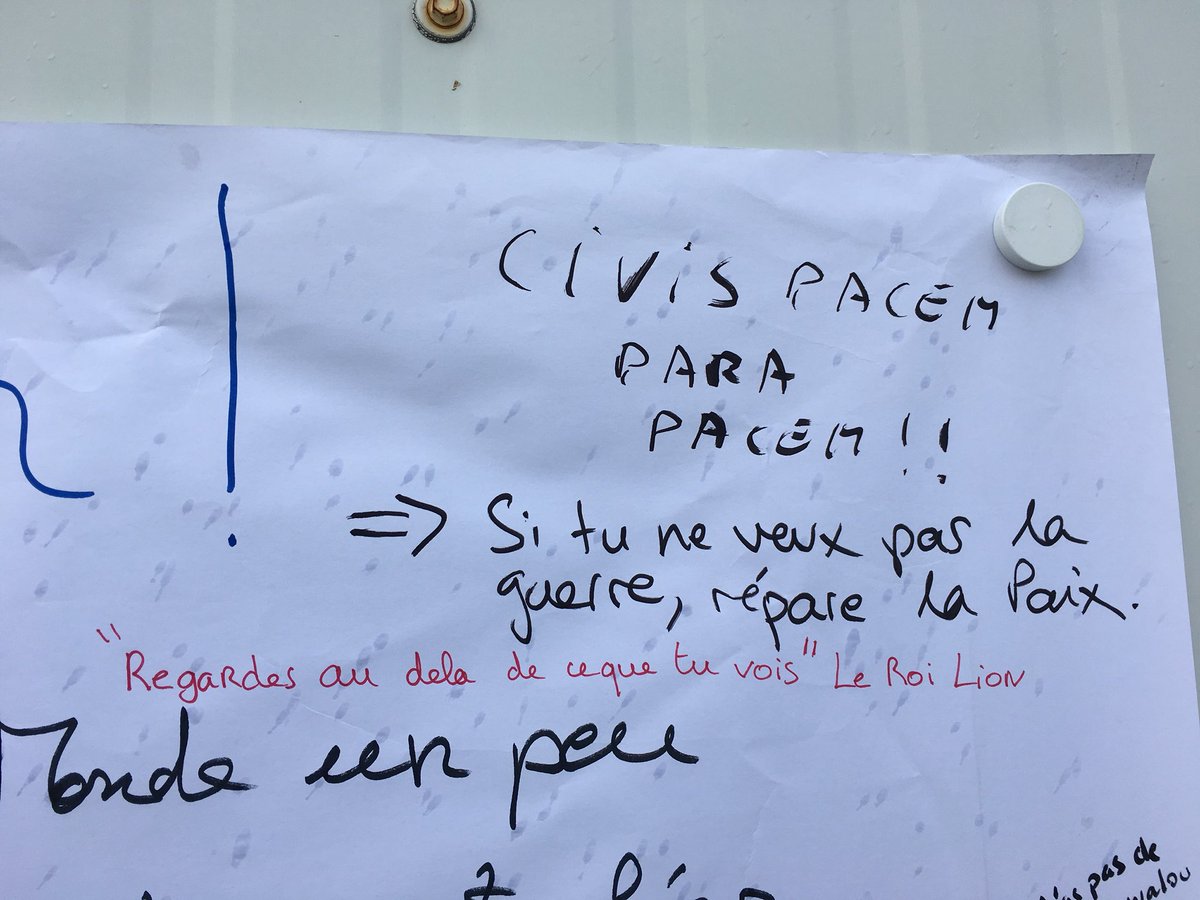 CiViS PACEM
PARA
PACEM !!
=> Si tu ne veux pas la
guerre, répare la Paix.
"Regardes au dela de ce que tu vois" Le Roi Lion
Monde un peu
pas de